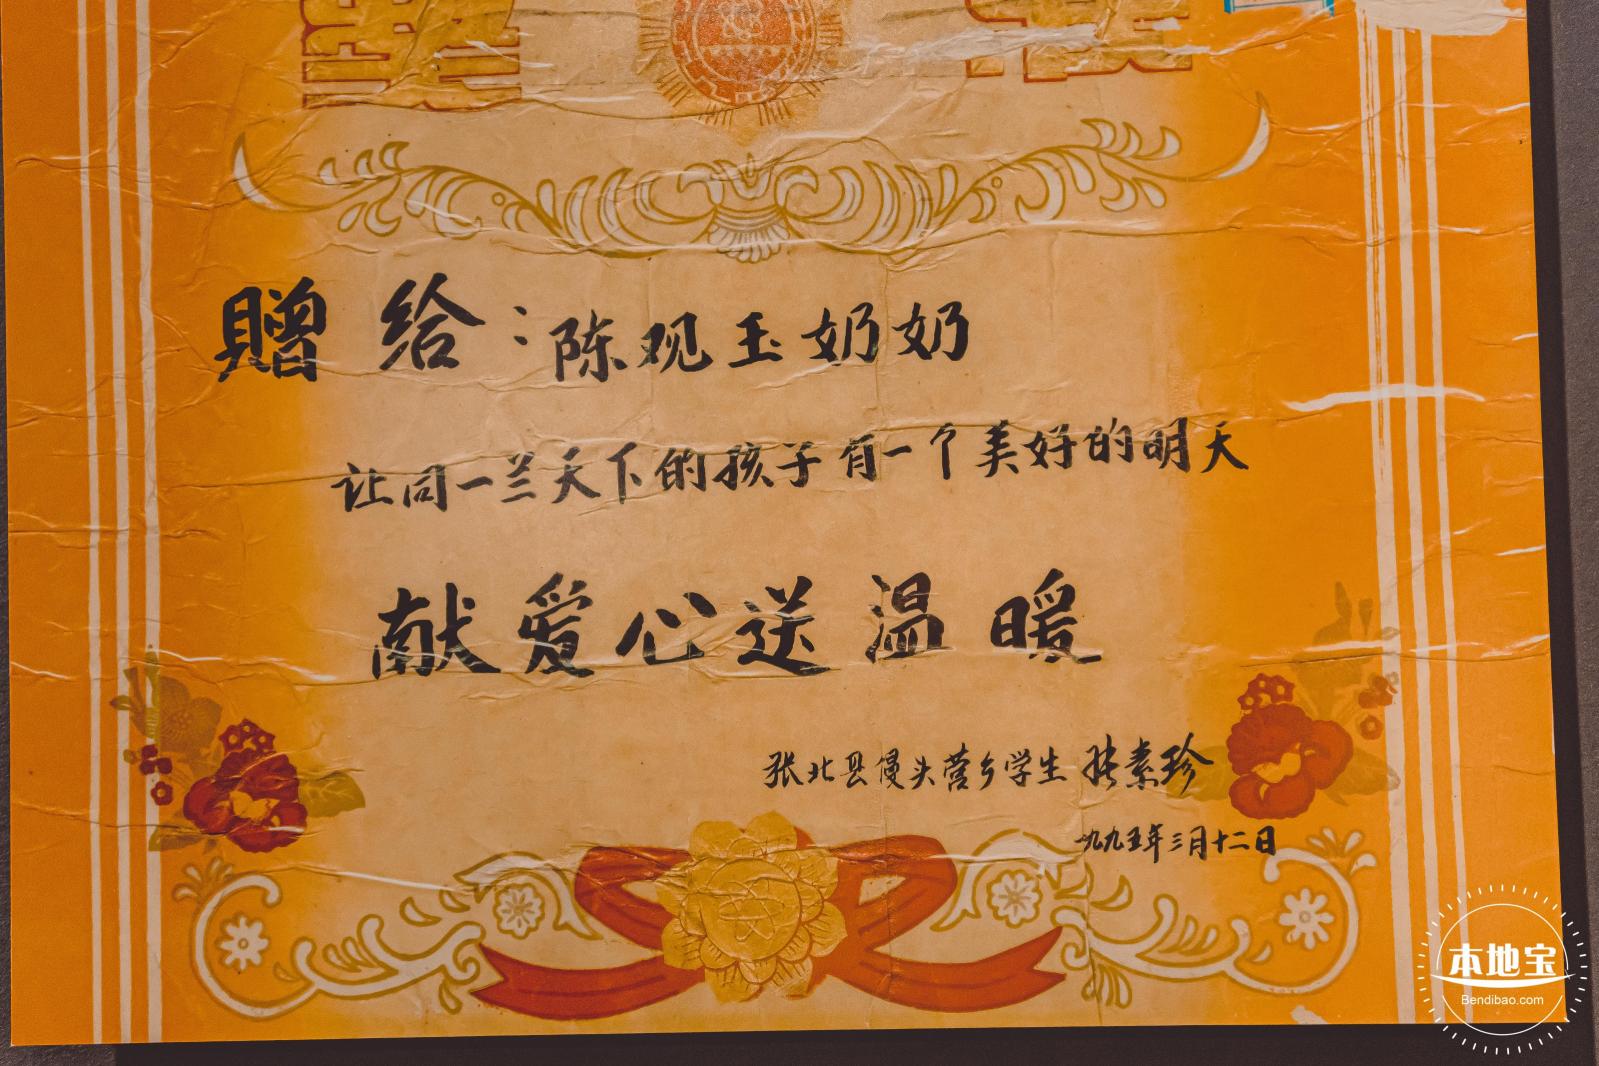 赠给：陈观玉奶奶
让同一兰天下的孩子有一个美好的明天
献爱心送温暖
张北县馒头营乡学生 张素珍
一九九五年三月十二日
本地宝
Bendibao.com